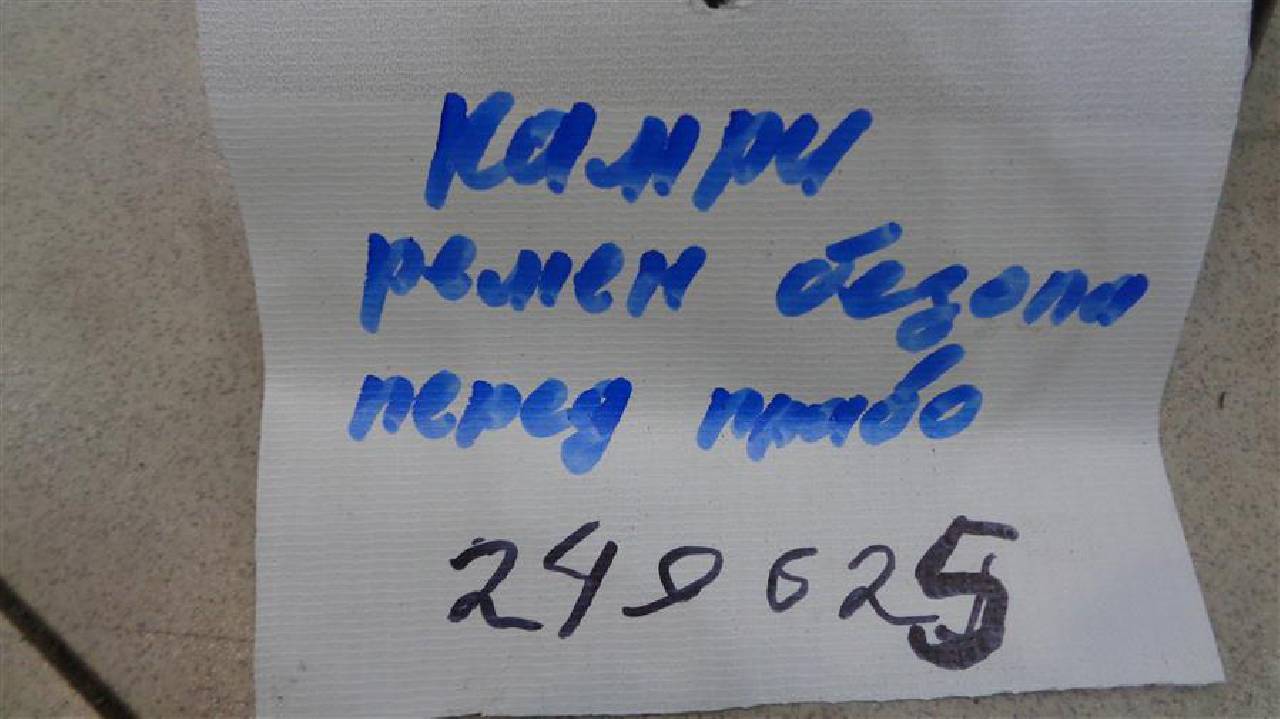 Камри
ремен безопа
перед прабо
249625